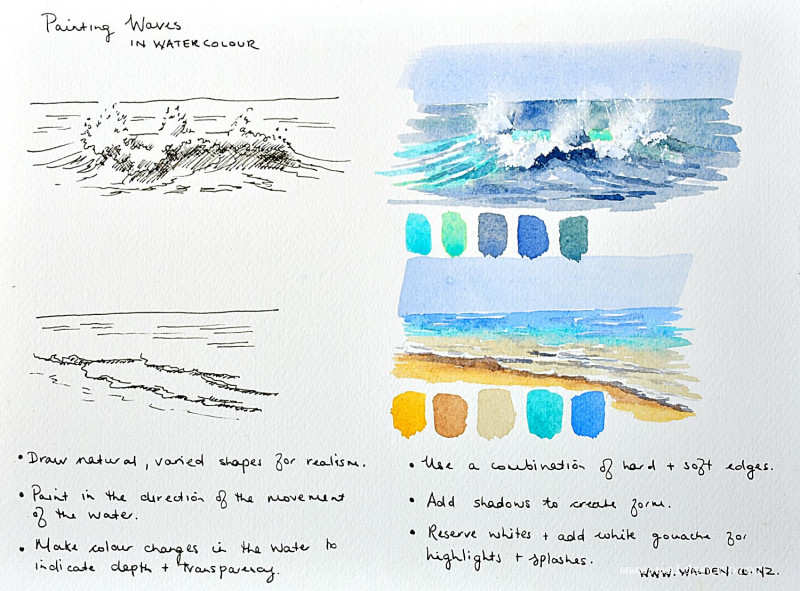 Painting Waves
IN WATERCOLOUR
• Draw natural, varied shapes for realism.
• Paint in the direction of the movement
of the water.
• Make colour changes in the water to
indicate depth + transparency.
• Use a combination of hard + soft edges.
• Add shadows to create form.
• Reserve whites + add white gouache for
highlights + splashes.
WWW.WALDEN.CO.NZ.